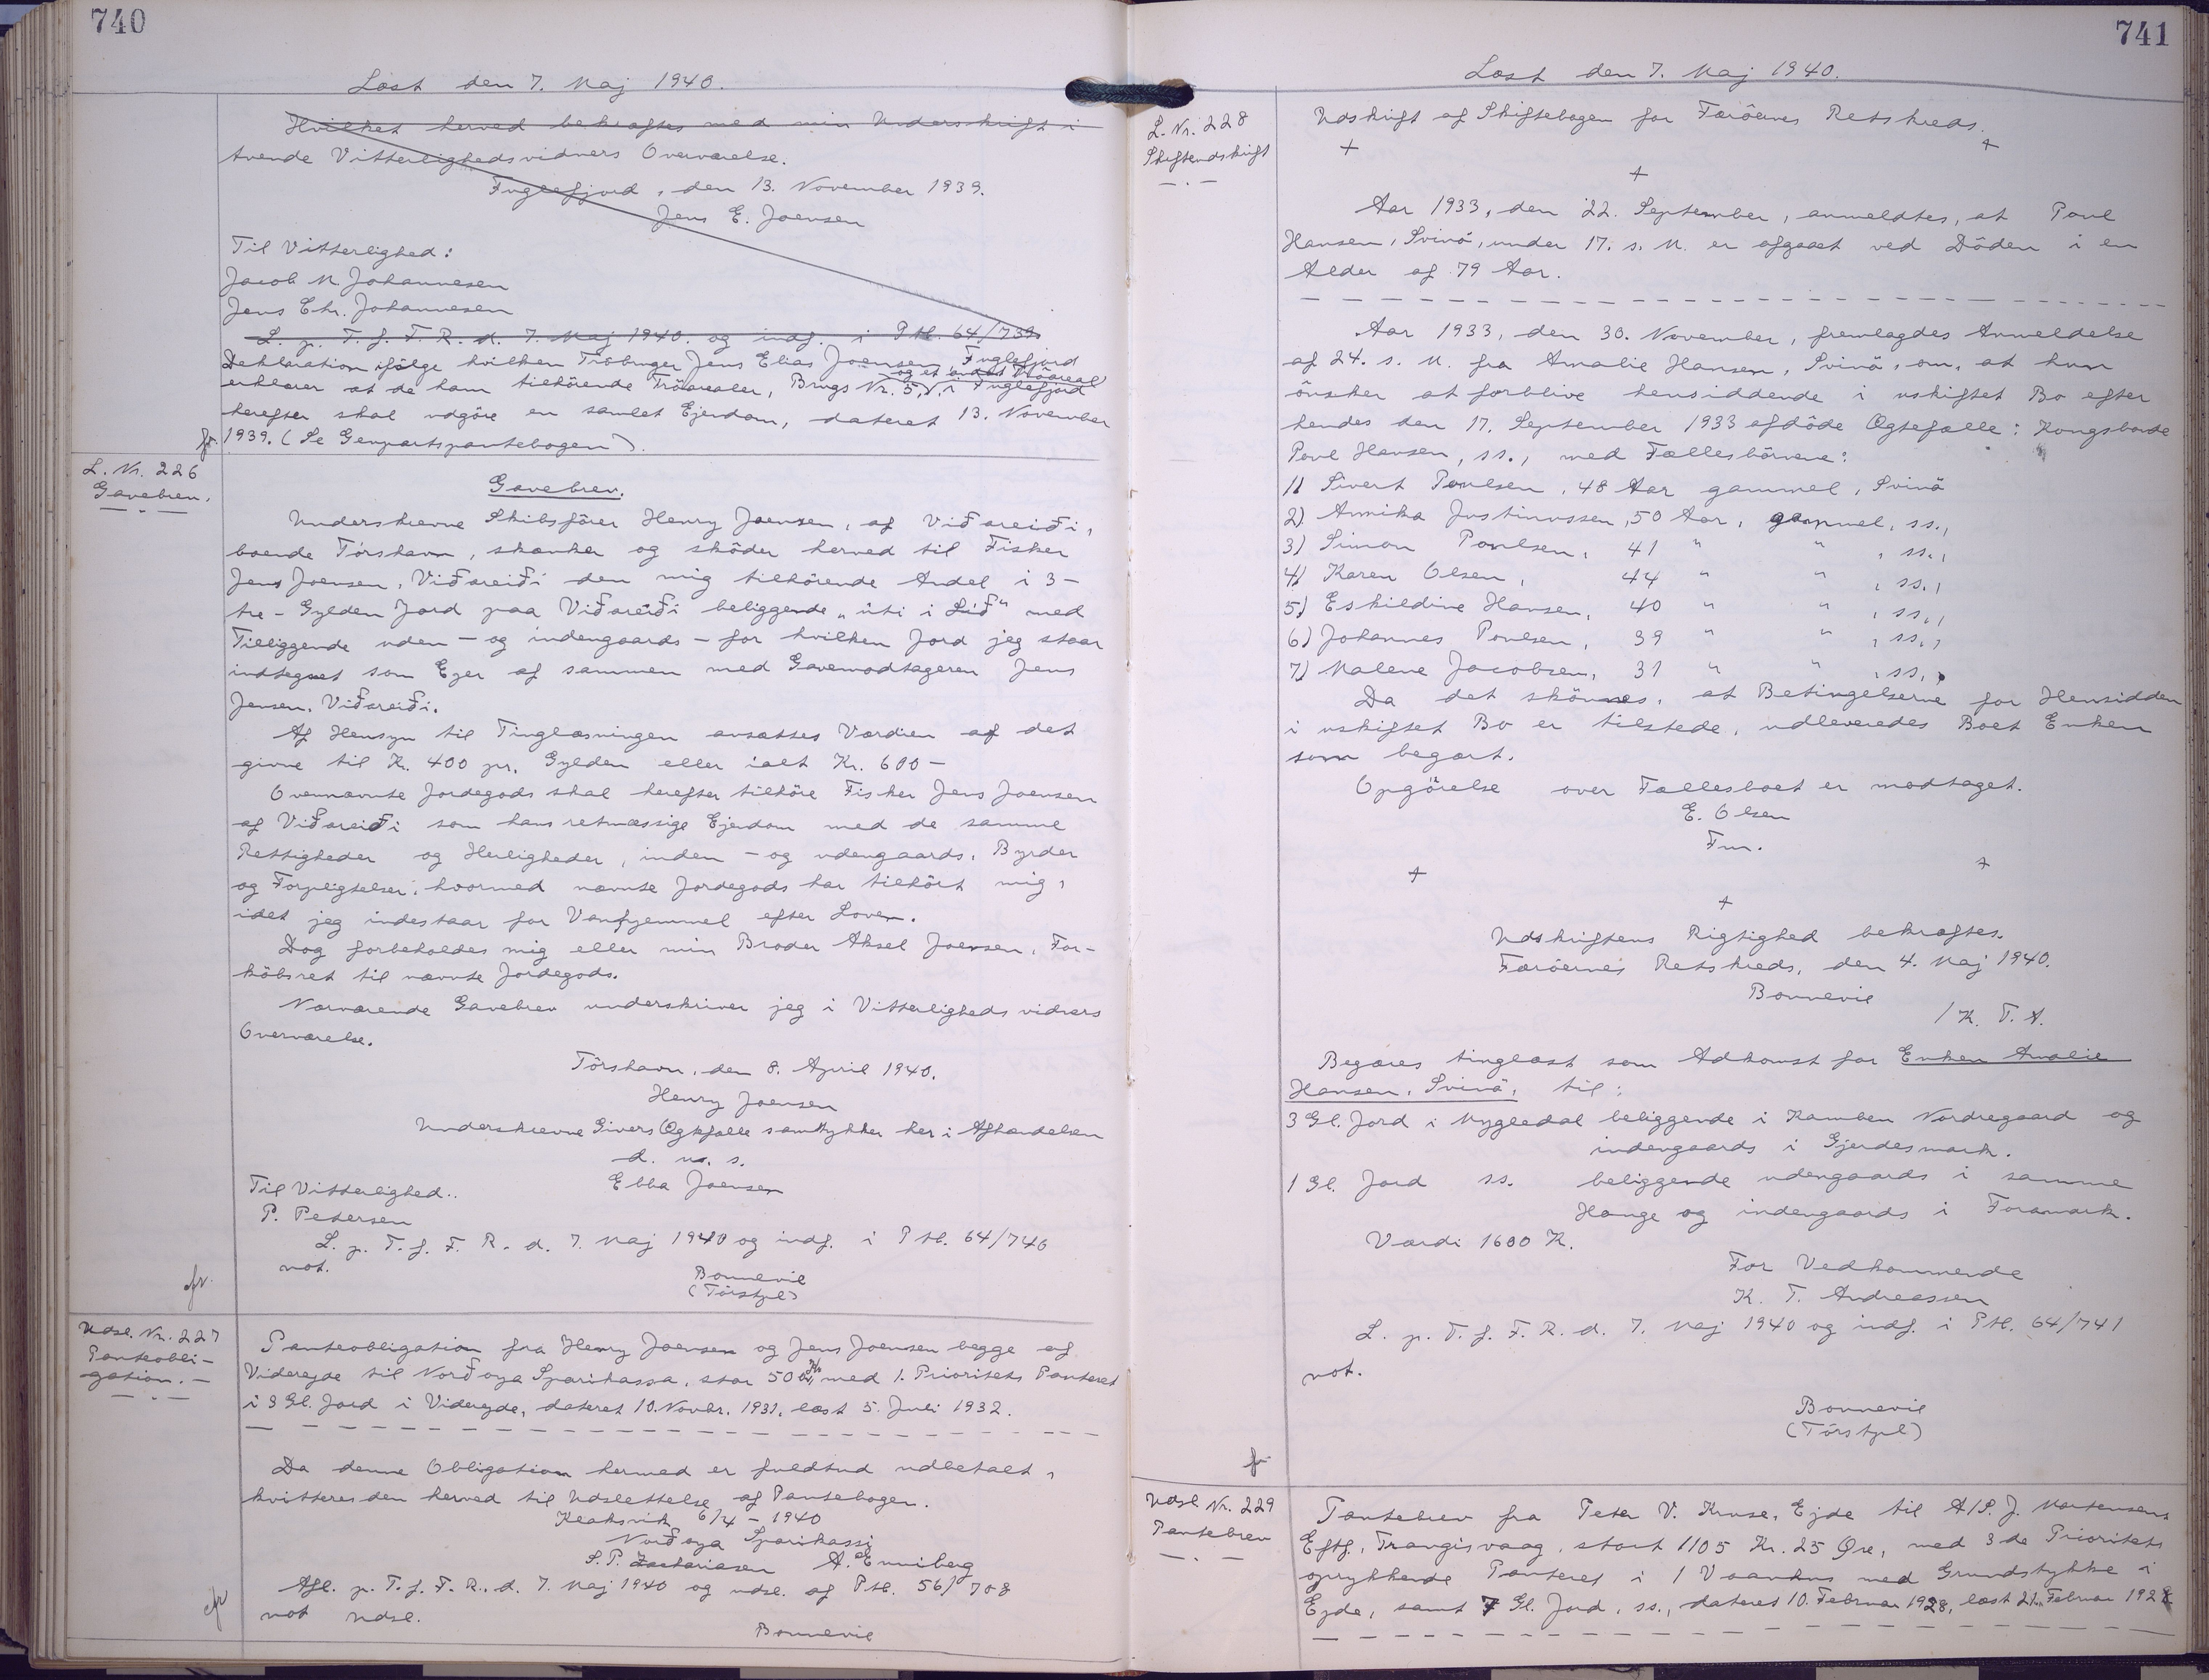 740
Læst den 7. Maj 1940.
Hvilket herved bekræftes med min Underskrift i
tvende Vitterlighedsvidners Overværelse.
Fuglefjord, den 13. November 1939.
Jens E. Joensen
Til Vitterlighed:
Jacob M. Johannesen
Jens Chr. Johannesen
L. p. T. f. F. R. d. 7. Maj 1940. og indf. i P th. 64/739.
Deklaration ifølge hvilken Tröbruger Jens Elias Joensen, Fuglefjord
erklærer at de ham tilhörende Tröarealer, Brugs Nr. 5, og et andet Tröareal i Fuglefjord
herefter skal udgöre en samlet Ejendom, dateret 13. November
fr. 1939. (Se Genpartspantebogen).
L. Nr. 226
Gavebrev.
Gavebrev.
Underskrevne Skibsförer Henry Joensen, af Viðareiði,
boende Tórshavn, skænker og sköder herved til Fisker
Jens Joensen, Viðareiði den mig tilhörende Andel i 3-
tre-Gylden Jord paa Viðareiði beliggende "úti i Líð" med
Tilliggende uden- og indengaards - for hvilken Jord jeg staar
indtegnet som Ejer af sammen med Gavemodtageren Jens
Jensen. Viðareiði.
Af Hensyn til Tinglæsningen ansættes Værdien af det
givne til Kr. 400 pr. Gylden eller ialt Kr. 600-
Ovennævnte Jordegods skal herefter tilhöre Fisker Jens Joensen
af Viðareiði som hans retmæssige Ejendom med de samme
Rettigheder og Herligheder, inden- og udengaards, Byrder
og Forpligtelser, hvormed nævnte Jordegods har tilhört mig,
idet jeg indestaar for Vanhjemmel efter Loven.
Dog forbeholdes mig eller min Broder Aksel Joensen, For-
köbsret til nævnte Jordegods.
Nærværende Gavebrev underskriver jeg i Vitterlighedsvidners
Overværelse.
Tórshavn, den 8. April 1940.
Henry Joensen
Underskrevne Givers Ægtefælle samtykker her i Afhændelsen
d. u. s.
Ebba Joensen
Til Vitterlighed..
P. Petersen
L. p. T. f. F. R. d. 7. Maj 1940 og indf. i P th. 64/740
not.
Bonnevie
(Tórstpl)
Udsl. Nr. 227
Panteobli-
gation.-
Panteobligation fra Henry Joensen og Jens Joensen begge af
Viderejde til Norðoya Sparikassa, stor 500 Kr., med 1. Prioritets Panteret
i 3 Gl. Jord i Viderejde, dateret 10. Novbr. 1931, læst 5. Juli 1932.
Da denne Obligation hermed er fuldtud udbetalt,
kvitteres den herved til Udslettelse af Pantebogen.
Klaksvik 6/4 - 1940
Norðoya Sparikassi
S. P. Zachariasen A. Enniberg
Afl. p. T. f. F. R. d. 7. Maj 1940 og udsl. af P th. 56/708
not Udsl.
Bonnevie
741
Læst den 7. Maj 1940.
L. Nr. 228
Skifteudskrift
Udskrift af Skiftebogen for Færöernes Retskreds.
+ + +
Aar 1933, den 22. September, anmeldtes, at Poul
Hansen, Svinö, under 17. s. M. er afgaaet ved Döden i en
Alder af 79 Aar.
Aar 1933, den 30. November, fremlagdes Anmeldelse
af 24. s. M. fra Amalie Hansen, Svinö, om, at hun
önsker at forblive hensiddende i uskiftet Bo efter
hendes den 17. September 1933 afdöde Ægtefælle: Kongsbonde
Poul Hansen, ss., med Fællesbörnene:
1) Sivert Poulsen, 48 Aar gammel, Svinö
2) Annika Justinussen, 50 Aar, gammel, ss.,
3) Simon Poulsen, 41 " " , ss.,
4) Karen Olsen, 44 " " , ss.,
5) Eskildine Hansen, 40 " " , ss.,
6) Johannes Poulsen, 39 " " , ss.,
7) Malene Jacobsen, 31 " " , ss.,
Da det skönnes, at Betingelserne for Hensidden
i uskiftet Bo er tilstede, udleveredes Boet Enken
som begært.
Opgörelse over Fællesboet er modtaget.
E. Olsen
Fm.
+ + +
Udskriftens Rigtighed bekræftes.
Færöernes Retskreds, den 4. Maj 1940.
Bonnevie
/ K. T. A.
Begæres tinglæst som Adkomst for Enken Amalie
Hansen, Svinö, til:
3 Gl. Jord i Mygledal beliggende i Kamben Nordregaard og
indengaards i Gjerdesmark.
1 Gl. Jord ss. beliggende udengaards i samme
Hauge og indengaards i Foramark.
Værdi 1600 K.
For Vedkommende
K. T. Andreassen
L. p. T. f. F. R. d. 7. Maj 1940 og indf. i P th. 64/741
not.
Bonnevie
(Tórstpl)
fr
Udsl Nr. 229
Pantebrev
Pantebrev fra Peter V. Kruse, Ejde til A/S. J. Mortensens
Eftf., Trangisvaag, stort 1105 Kr. 25 Øre, med 3de Prioritets
oprykkende Panteret i 1 Vaanhus med Grundstykke i
Ejde, samt 7 Gl. Jord, ss., dateret 10. Februar 1928, læst 21. Februar 1928